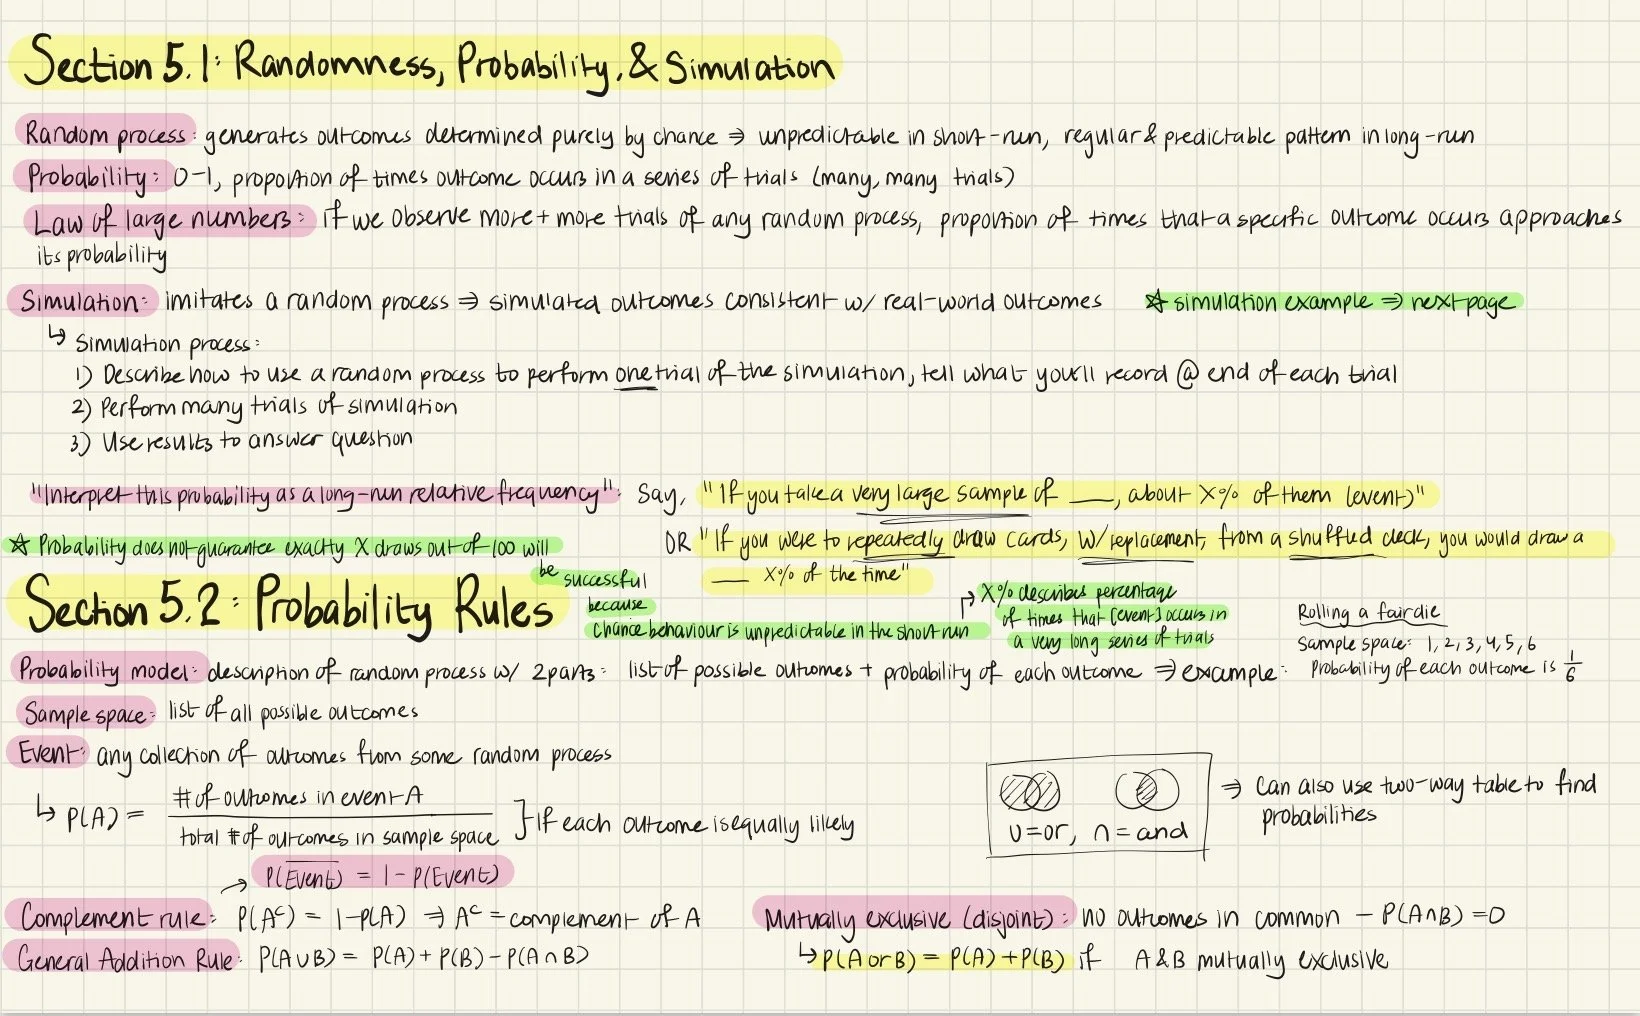 Section 5.1: Randomness, Probability, & Simulation
Random process: generates outcomes determined purely by chance ⇒ unpredictable in short-run, regular & predictable pattern in long-run
Probability: 0-1, proportion of times outcome occurs in a series of trials (many, many trials)
Law of large numbers: if we observe more + more trials of any random process, proportion of times that a specific outcome occurs approaches
its probability
Simulation: imitates a random process ⇒ simulated outcomes consistent w/ real-world outcomes ☆ simulation example ⇒ next page
↳ Simulation process:
1) Describe how to use a random process to perform one trial of the simulation, tell what you'll record @ end of each trial
2) Perform many trials of simulation
3) Use results to answer question
"Interpret this probability as a long-run relative frequency": Say, "If you take a very large sample of ___, about X% of them (event)"
OR "If you were to repeatedly draw cards, w/ replacement, from a shuffled deck, you would draw a
___ X% of the time"
☆ Probability does not guarantee exactly X draws out of 100 will
be successful
because
chance behaviour is unpredictable in the short run
→ X% describes percentage
of times that [event] occurs in
a very long series of trials
Section 5.2: Probability Rules
Rolling a fair die
Sample space: 1, 2, 3, 4, 5, 6
Probability of each outcome is 1/6
Probability model: description of random process w/ 2 parts: list of possible outcomes + probability of each outcome ⇒ example:
Sample space: list of all possible outcomes
Event: any collection of outcomes from some random process
↳ P(A) = # of outcomes in event A / total # of outcomes in sample space } if each outcome is equally likely
∪ = or, ∩ = and
⇒ can also use two-way table to find
probabilities
→ P(E̅v̅e̅n̅t̅) = 1 - P(Event)
Complement rule: P(Aᶜ) = 1-P(A) ⇒ Aᶜ = complement of A
General Addition Rule: P(A∪B) = P(A) + P(B) - P(A∩B)
Mutually exclusive (disjoint): no outcomes in common - P(A∩B) = 0
↳ P(A or B) = P(A) + P(B) if A & B mutually exclusive